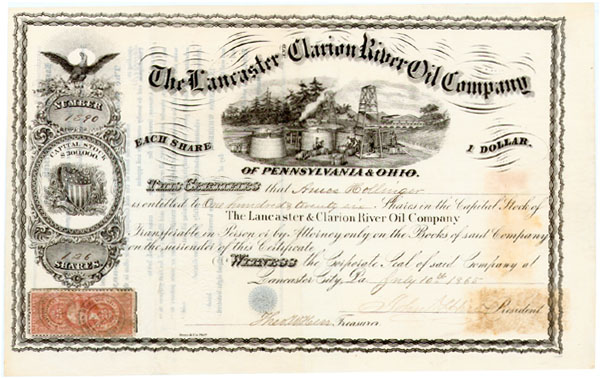 The Lancaster AND Clarion River Oil Company
NUMBER
1590
CAPITAL STOCK
$300,000.
EACH SHARE 1 DOLLAR.
OF PENNSYLVANIA & OHIO.
This Certifies that Amos Hollinger
is entitled to One hundred & twenty six Shares in the Capital Stock of
The Lancaster & Clarion River Oil Company
Transferable in Person or by Attorney only on the Books of said Company
on the surrender of this Certificate
SHARES
Witness the Corporate Seal of said Company at
Lancaster City, Pa July 10th 1865
President
Treasurer